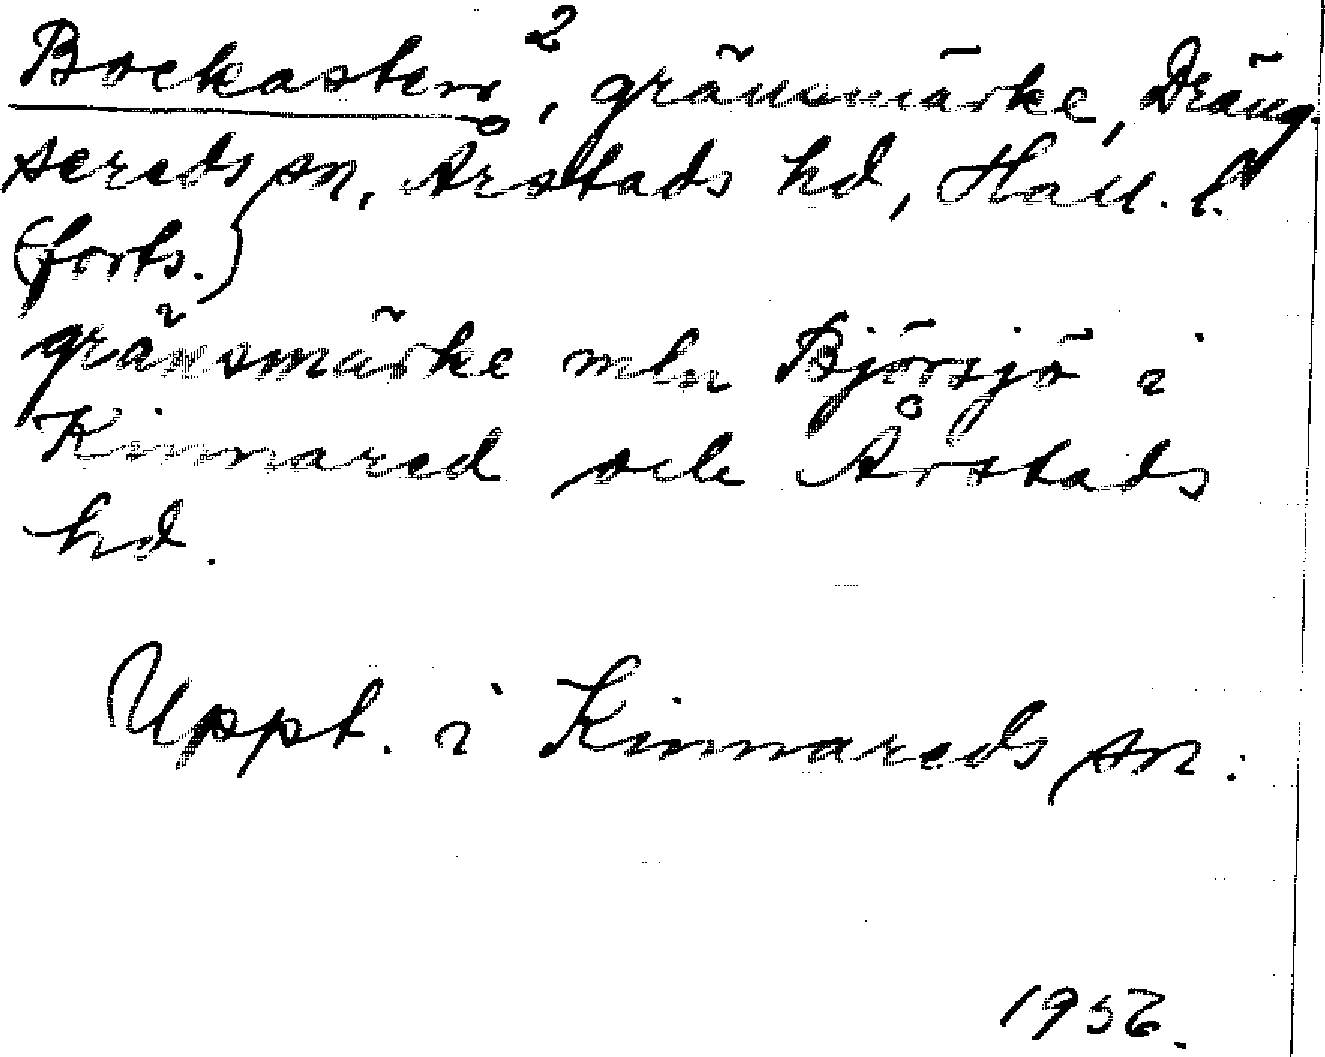 Bockasten², gränsmärke, Dräng-
sereds sn, Årstads hd, Hall. l.
(forts.)
gränsmärke mln Björsjö i
Kinnared och Årstads
hd.
Uppt. i Kinnareds sn.
1956.